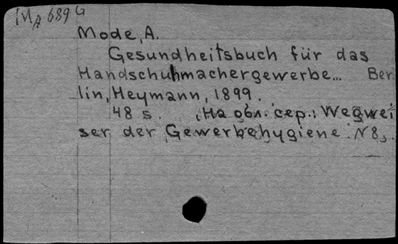 IMA 689 G
Mode, A.
Gesundheitsbuch für das
Handschuhmachergewerbe... Ber
lin, Heymann, 1899.
48 s. (На обл. сер.: Wegwei
ser der Gewerbehygiene. N8).